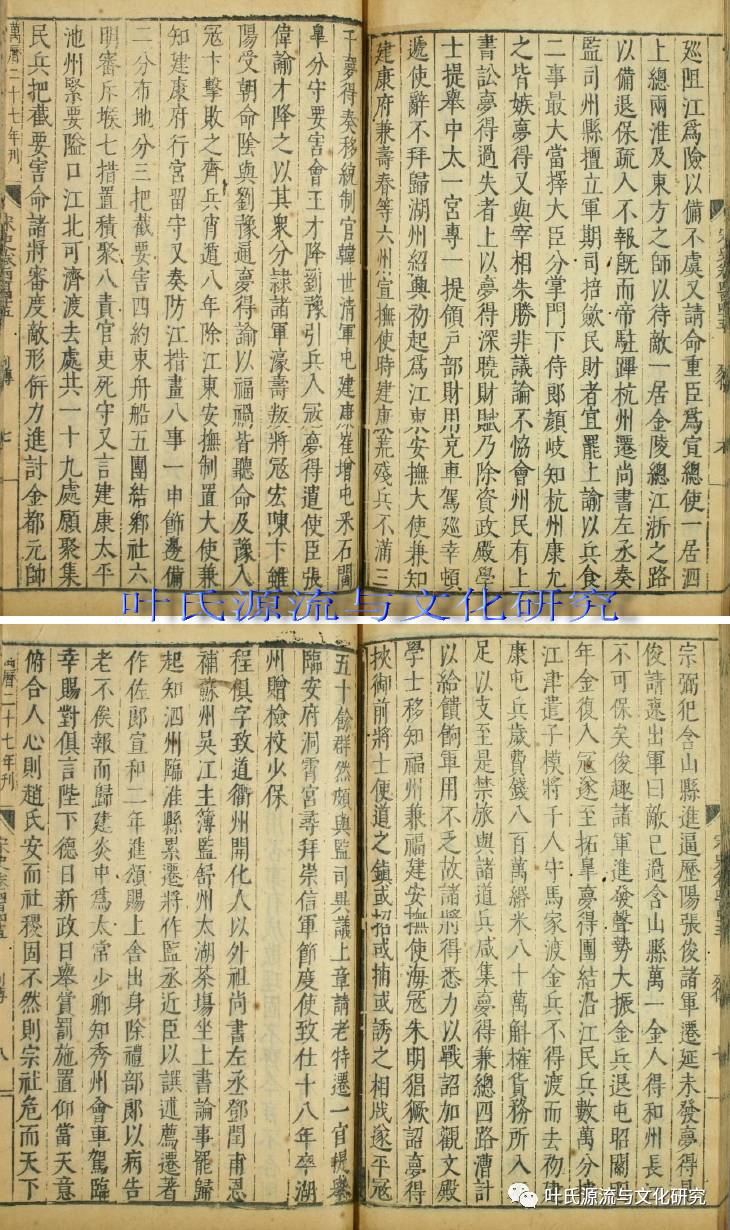 巡阻江爲險以備不虞又請命重臣爲宣總使一居泗
上總兩淮及東方之師以待敵一居金陵總江浙之路
以備退保疏入不報旣而帝駐蹕杭州遷尚書左丞奏
監司州縣擅立軍期司掊斂民財者宜罷上諭以兵食
二事最大當擇大臣分掌門下侍郎顏岐知杭州康允
之皆嫉夢得又與宰相朱勝非議論不恊會州民有上
書訟夢得過失者上以夢得深曉財賦乃除資政殿學
士提舉中太一宮專一提領戶部財用充車駕巡幸頓
遞使辭不拜歸湖州紹興初起爲江東安撫大使兼知
建康府兼壽春等六州宣撫使時建康荒殘兵不滿三
千夢得奏移統制官韓世清軍屯建康崔增屯釆石閻
臯分守要害會王才降劉豫引兵入冦夢得遣使臣張
偉諭才降之以其衆分隷諸軍濠壽叛將冦宏陳卞雖
陽受朝命隂與劉豫通夢得諭以福禍皆聽命及豫入
冦卞擊敗之齊兵宵遁八年除江東安撫制置大使兼
知建康府行宮留守又奏防江措畫八事一申飭邊備
二分布地分三把截要害四約束舟船五團結鄉社六
明審斥堠七措置積聚八責官吏死守又言建康太平
池州緊要隘口江北可濟渡去處共一十九處願聚集
民兵把截要害命諸將審度敵形倂力進討金都元帥
萬曆二十七年刊
列傳
七
叶氏源流与文化研究
宗弼犯含山縣進逼歷陽張俊諸軍遷延未發夢得見
俊請速出軍曰敵已過含山縣萬一金人得和州長江
不可保矣俊趣諸軍進發聲勢大振金兵退屯昭關明
年金復入冦遂至拓臯夢得團結沿江民兵數萬分據
江津遣子模將千人守馬家渡金兵不得渡而去初建
康屯兵歲費錢八百萬緡米八十萬斛榷貨務所入不
足以支至是禁旅與諸道兵咸集夢得兼總四路漕計
以給饋餉軍用不乏故諸將得悉力以戰詔加觀文殿
學士移知福州兼福建安撫使海冦朱明猖獗詔夢得
挾御前將士便道之鎭或招或捕或誘之相戕遂平冦
五十餘群然頗與監司異議上章請老特遷一官提舉
臨安府洞霄宮尋拜崇信軍節度使致仕十八年卒湖
州贈檢校少保
程俱字致道衢州開化人以外祖尚書左丞鄧閏甫恩
補蘇州吳江主簿監舒州太湖茶場坐上書論事罷歸
起知泗州臨淮縣累遷將作監丞近臣以譔述薦遷著
作佐郎宣和二年進頌賜上舍出身除禮部郎以病告
老不俟報而歸建炎中爲太常少卿知秀州會車駕臨
幸賜對俱言陛下德日新政日舉賞罰施置仰當天意
俯合人心則趙氏安而社稷固不然則宗社危而天下
萬曆二十七年刊
列傳
八
叶氏源流与文化研究